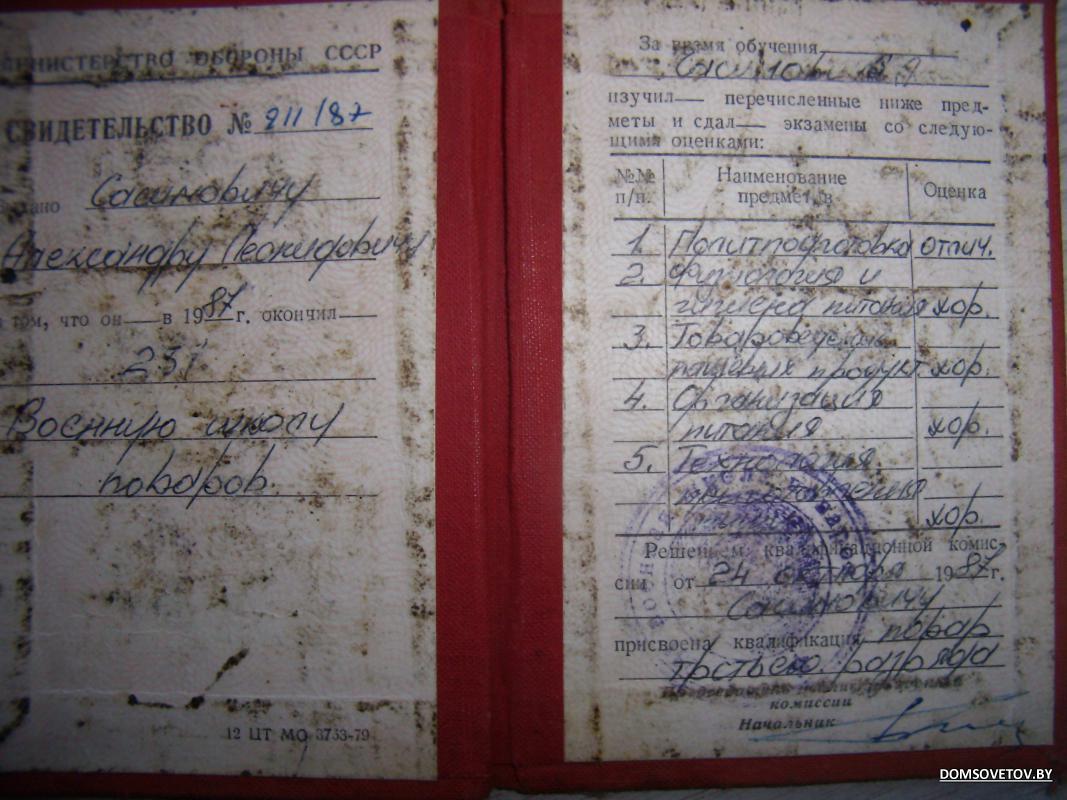 МИНИСТЕРСТВО ОБОРОНЫ СССР
СВИДЕТЕЛЬСТВО № 211/87
Сасиновичу
Александру Леонидовичу
в том, что он — в 1987 г. окончил —
231
Военную школу
поваров.
12 ЦТ МО 3753-79
За время обучения
изучил— перечисленные ниже пред-
меты и сдал— экзамены со следую-
щими оценками:
№№ п/п. Наименование предметов Оценка
1. Политподготовка отлич.
2. Физиология и
гигиена питания хор.
3. Товароведение
пищевых продукт хор.
4. Организация
питания хор.
5. Технология
приготовления
пищи хор.
Решением квалификационной комис-
сии от 24 октября 1987 г.
Сасиновичу
присвоена квалификация повар
третьего разряда
комиссии
Начальник
DOMSOVETOV.BY